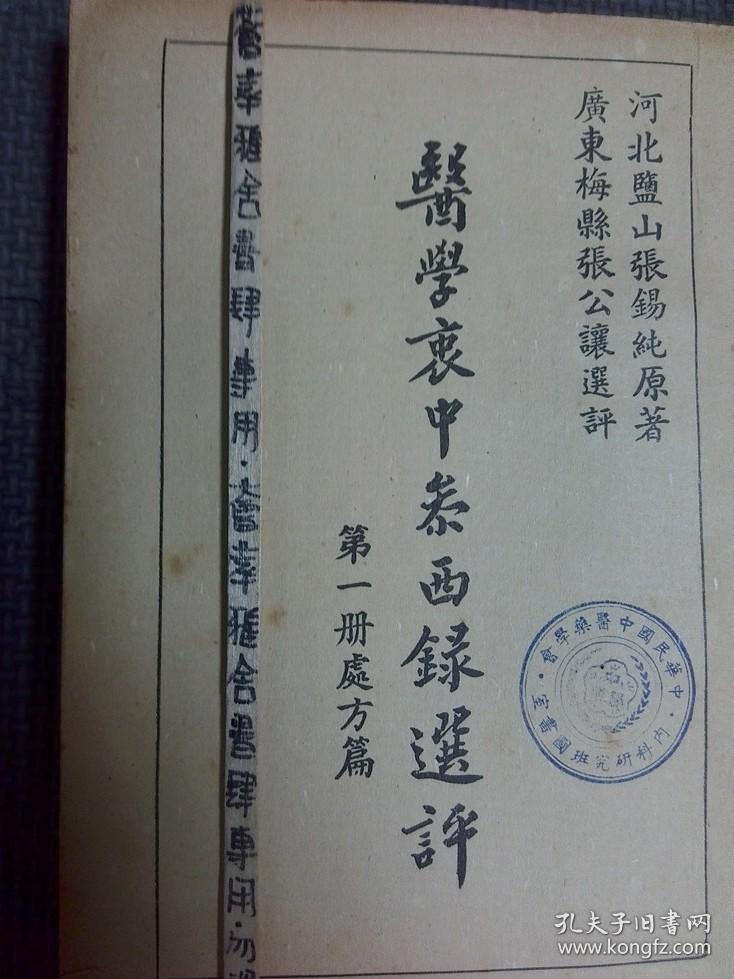 河北鹽山張錫純原著
廣東梅縣張公讓選評
醫學衷中叅西録選評
第一册處方篇
中華民國中醫藥學會
內科研究班國醫
舍書肆專用·
舍書肆專用·勿
孔夫子旧书网
www.kongfz.com